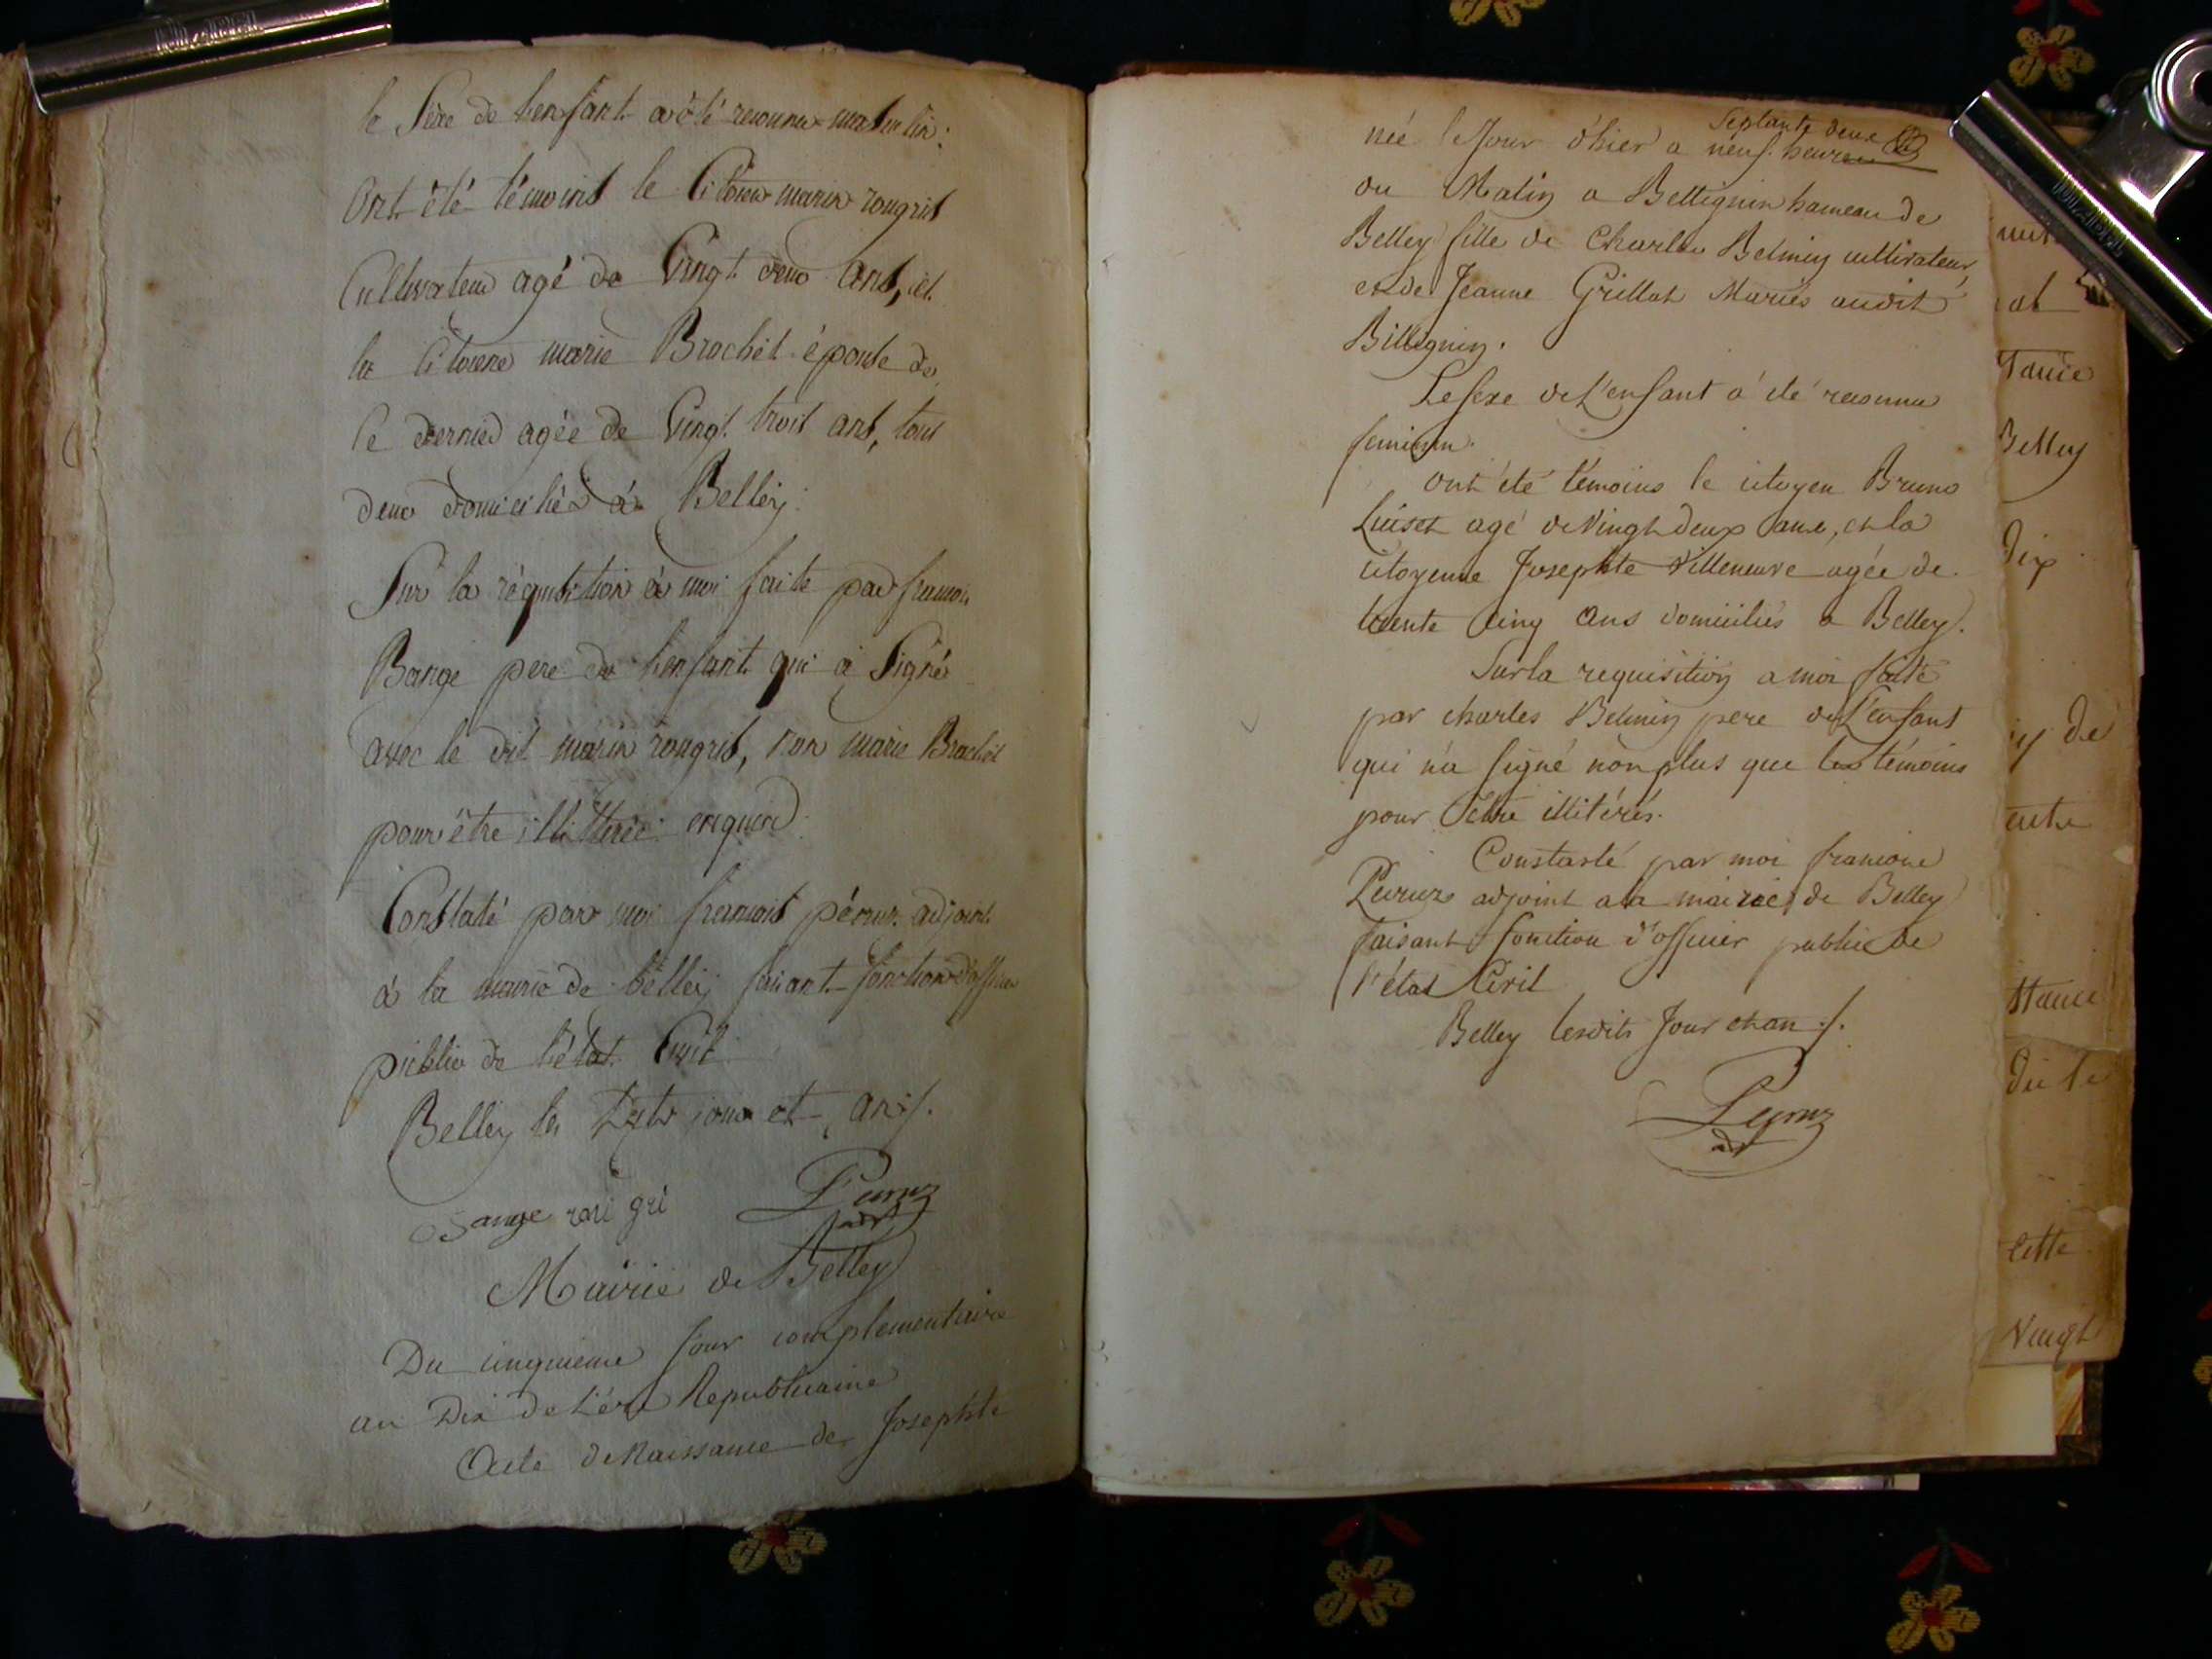 le Sexe de lenfant a été reconnu masculin.
Ont été témoins le Citoien marin rougris
Cultivateur agé de Vingt deux ans, et
la Citoiene marie Brochet épouse de
le dernier agée de Vingt trois ans, tous
deux domiciliés à Belley.
Sur la réquisition à moi faite par francois
Bange pere de lenfant qui à Signé
avec le dit marin rougris, non marie Brochet
pour être illitterée enquise.
Constaté par moi francois péruz adjoint
à la mairie de belley faisant fonction d'officier
public de létat Civil
Belley les dits jour et an /.
Bange rougri Peyruz
adt
Mairie de Belley
Du cinquieme Jour complementaire
an Dix de L'ére Republicaine
Acte de Naissance de Josephte
Septante deux
née le Jour d'hier a neuf heures
du Matin a Bettignin hameau de
Belley fille de Charles Belmin cultivateur
et de Jeanne Grillat Mariés audit
Billignin.
Le sexe de L'enfant a été reconnu
feminin.
Ont été témoins le citoyen Bruno
Luiset agé de Vingt deux ans, et la
citoyenne Josephte Villeneuve agée de
trente Cinq ans domiciliés a Belley.
Sur la requisition a moi faite
par charles Belmin pere de L'enfant
qui n'a signé non plus que les témoins
pour Etre illitérés.
Constaté par moi francois
Peruz adjoint a la mairie de Belley
faisant fonction d'officier public de
l'état Civil
Belley lesdits Jour et an /.
Peyruz
adt
at
tance
Belley
Dix
de
ente
ttance
Du le
cette
Vingt